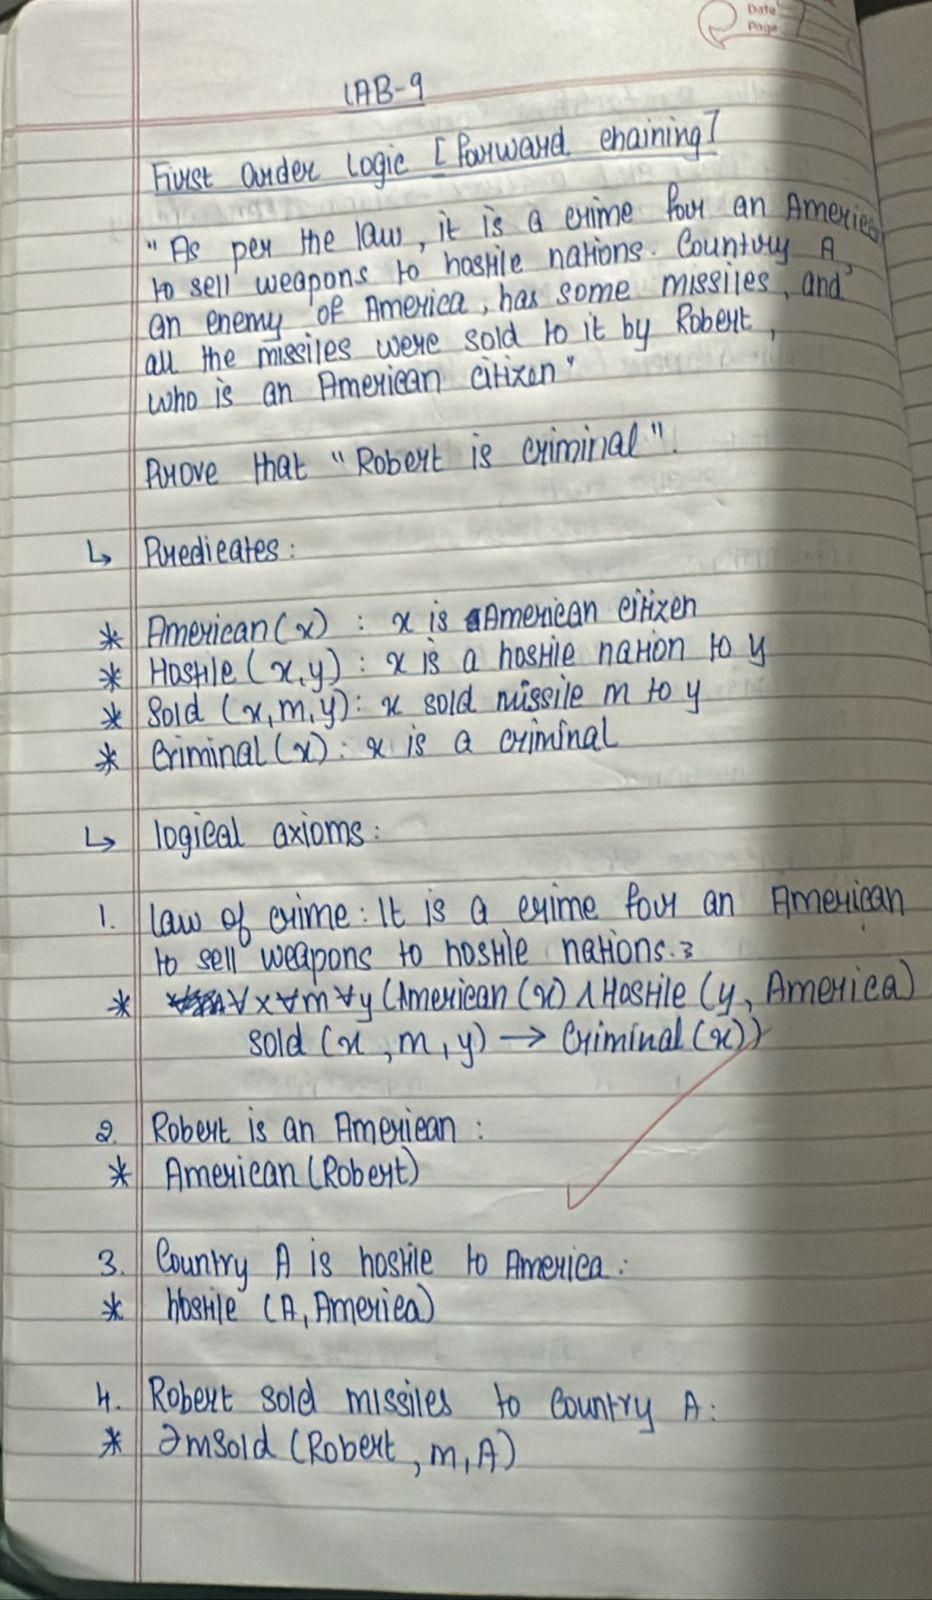 Date
Page
LAB-9
First Order Logic [Forward chaining]
"As per the law, it is a crime for an American
to sell weapons to hostile nations. Country A,
an enemy of America, has some missiles, and
all the missiles were sold to it by Robert,
who is an American citizen"
Prove that "Robert is criminal".
↳ Predicates:
* American(x) : x is American citizen
* Hostile (x,y) : x is a hostile nation to y
* Sold (x,m,y): x sold missile m to y
* Criminal(x): x is a criminal
↳ logical axioms:
1. law of crime: It is a crime for an American
to sell weapons to hostile nations.:
* ∀x∀m∀y (American (x) ∧ Hostile (y, America)
sold (x, m, y) → Criminal (x))
2. Robert is an American :
* American (Robert)
3. Country A is hostile to America :
* hostile (A, America)
4. Robert sold missiles to Country A:
* ∃m Sold (Robert, m, A)